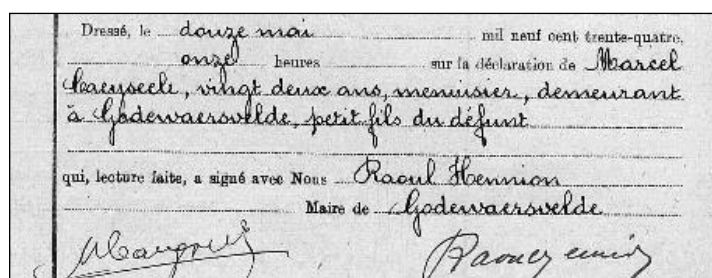 Dressé, le douze mai mil neuf cent trente-quatre,
onze heures sur la déclaration de Marcel
vingt deux ans, menuisier, demeurant
à Godewaersvelde, petit fils du défunt
qui, lecture faite, a signé avec Nous Raoul Hennion
Maire de Godewaersvelde